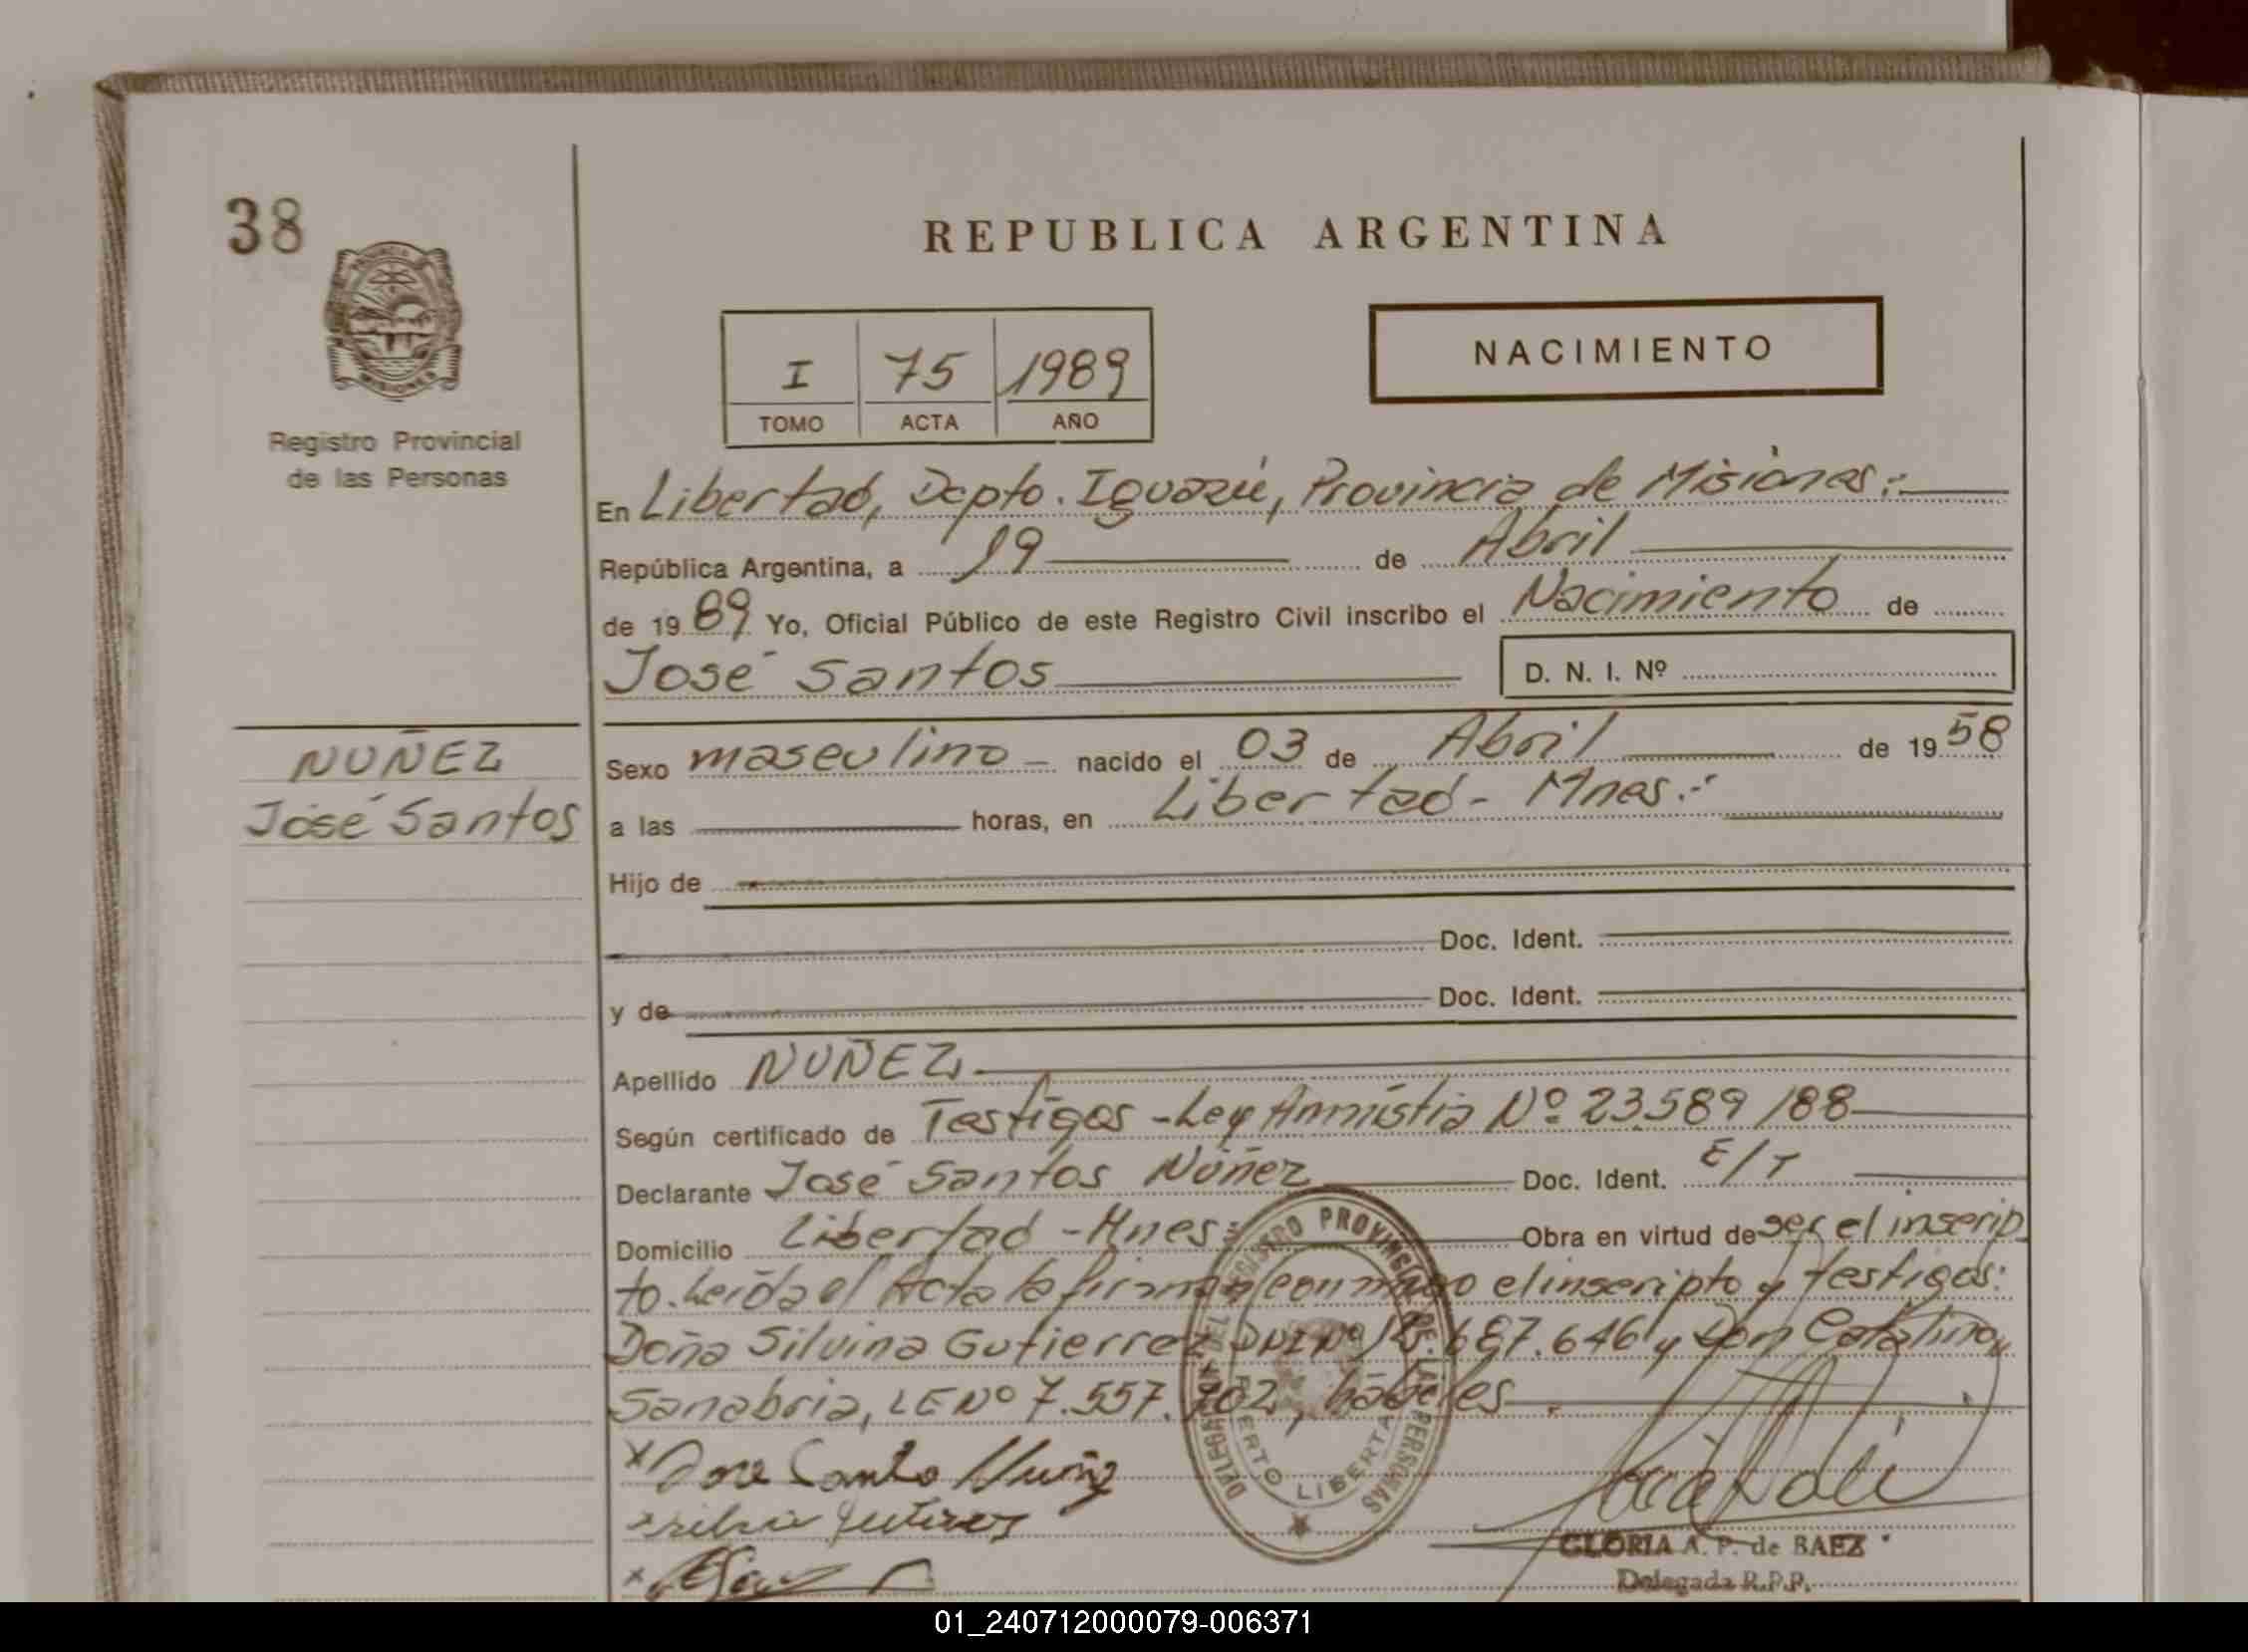 38
REPUBLICA ARGENTINA
PROVINCIA
MISIONES
Registro Provincial
de las Personas
I 75 1989
TOMO ACTA AÑO
NACIMIENTO
En Libertad, Dcpto. Iguazú, Provincia de Misiones:
República Argentina, a 19 de Abril
de 1989 Yo, Oficial Público de este Registro Civil inscribo el Nacimiento de
José Santos
D. N. I. Nº
NUÑEZ
José Santos
Sexo masculino nacido el 03 de Abril de 1958
a las horas, en Libertad - Mnes.-
Hijo de
Doc. Ident.
y de Doc. Ident.
Apellido NUÑEZ
Según certificado de Testigos - Ley Amnistia Nº 23.589/88
Declarante José Santos Núñez Doc. Ident. E/T
Domicilio Libertad - Mnes: Obra en virtud de ser el inscrip
to. Leída el Acta la firman conmigo el inscripto y testigos:
Doña Silvina Gutierrez DNI Nº 687.646 y Don Catalino
Sanabria, LE Nº 7.557. 902, hábiles
x Jose Santo Nuñez
GLORIA A. P. de BAEZ
Delegada R.P.P.
REGISTRO PROVINCIAL DE LAS PERSONAS
PUERTO LIBERTAD
01_240712000079-006371